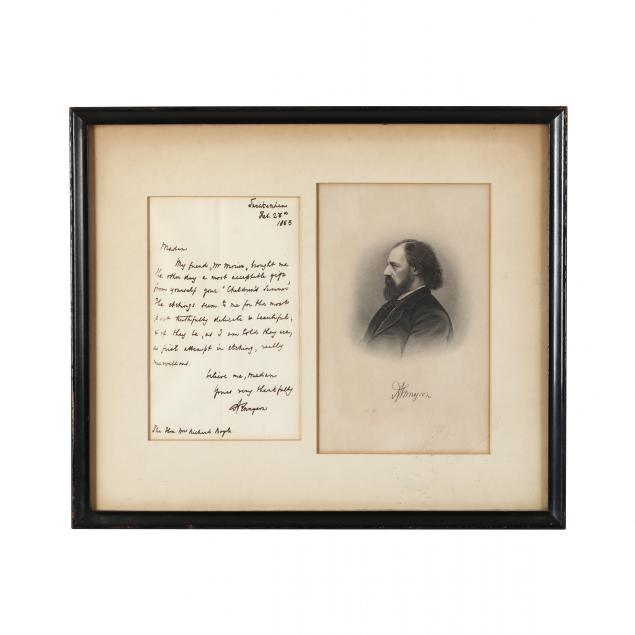 Twickenham
Feb. 28th
1853
Madam
My friend, Mr Morier, brought me
the other day a most acceptable gift
from yourself your "Children's Summer"
The etchings seem to me for the most
part truthfully delicate & beautiful;
& if they be, as I am told they are,
a first attempt in etching, really
marvellous.
believe me, Madam
Yours very thankfully
A Tennyson
The Hon Mrs Richard Boyle
A Tennyson